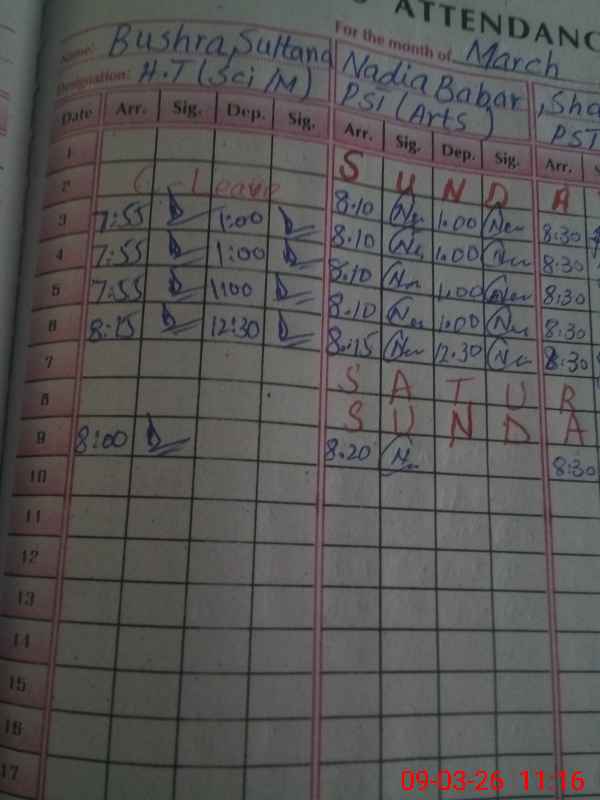 ATTENDANC
For the month of March
Name: Bushra Sultana Nadia Babar, Sha
Designation: H.T (Sci/M) PST (Arts) PST
Date Arr. Sig. Dep. Sig. Arr. Sig. Dep. Sig. Arr.
1 S U N D A
2 C-Leave 8.10 1.00 8:30
3 7:55 1:00 8.10 1.00 8:30
4 7:55 1:00 8.10 1.00 8:30
5 7:55 1:00 8.10 1.00 8:30
6 8:15 12:30 8.15 12.30 8:30
7 S A T U R
8 S U N D A
9 8:00 8.20 8:30
10
11
12
13
14
15
16
17
09-03-26 11:16